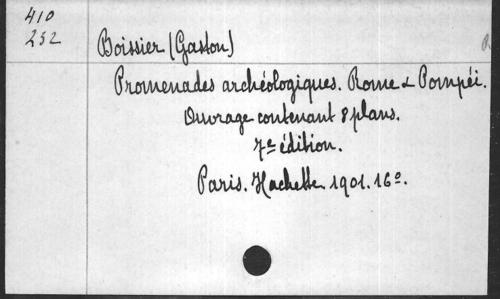 410
252
Boissier (Gaston)
Promenades archéologiques. Rome & Pompéi.
Ouvrage contenant 8 plans.
7e édition.
Paris. Hachette 1901. 16o.